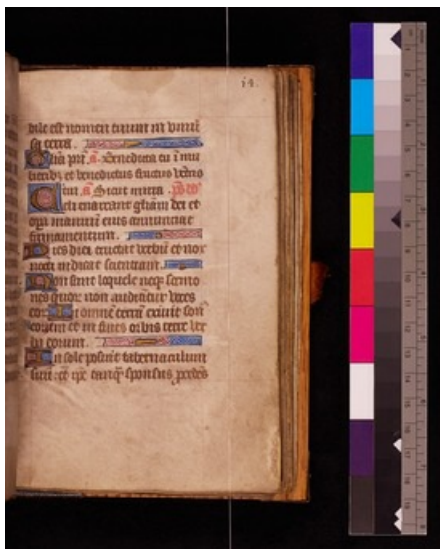 i4.
bile est nomen tuum in univer
sa terra.
Gla pri. a. Benedicta tu i mu
lieribz et benedictus fructus ventr
tui. a. Sicut mirra. ps dd
Celi enarrant gliam dei et
opa manuum eius annunciat
firmamentum.
Dies diei eructat verbū et nox
nocti indicat scientiam.
Non sunt loquele neqz sermo
nes quorz non audiētur voces
eoz. In omnē terrā exivit son
eorum et in fines orbis terre ver
ba eorum.
In sole posuit tabernaculum
suum et ipe tanqz sponsus